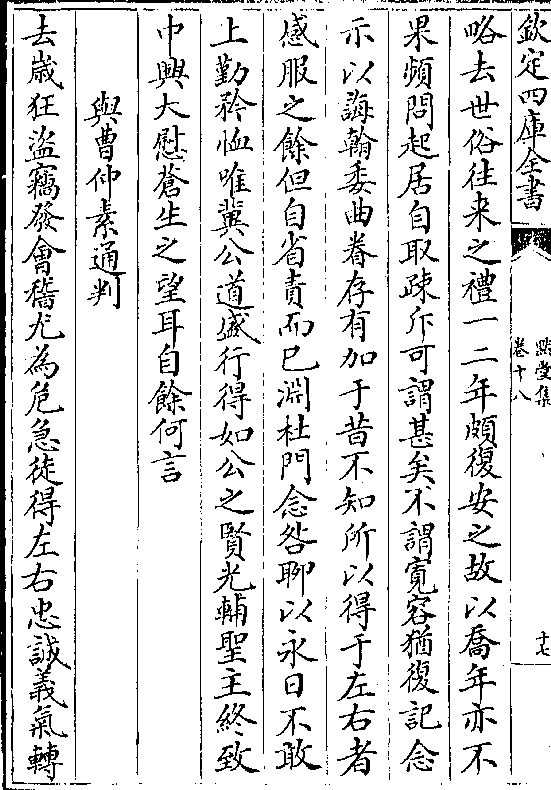 欽定四庫全書
默堂集
卷十八
十七
略去世俗往来之禮一二年頗復安之故以喬年亦不
果頻問起居自取疎斥可謂甚矣不謂寛容猶復記念
示以誨翰委曲眷存有加于昔不知所以得于左右者
感服之餘但自省責而已淵杜門念咎聊以永日不敢
上勤矜恤唯冀公道盛行得如公之賢光輔聖主終致
中興大慰蒼生之望耳自餘何言
與曹仲素通判
去歲狂盜竊發會稽尤為危急徒得左右忠誠義氣轉